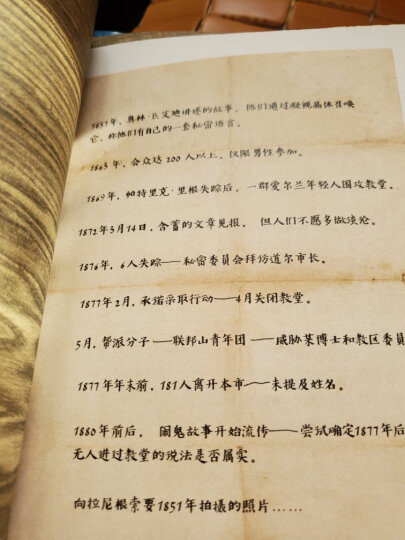 1857年，奥林·B.艾迪讲述的故事。他们通过凝视晶体召唤
它，称他们有自己的一套秘密语言。
1863年，会众达200人以上，仅限男性参加。
1869年，帕特里克·里根失踪后，一群爱尔兰年轻人围攻教堂。
1872年3月14日，含蓄的文章见报，但人们不愿多做谈论。
1876年，6人失踪——秘密委员会拜访道尔市长。
1877年2月，承诺采取行动——4月关闭教堂。
5月，帮派分子——联邦山青年团——威胁某博士和教区委员
1877年年末前，181人离开本市——未提及姓名。
1880年前后，闹鬼故事开始流传——尝试确定1877年后
无人进过教堂的说法是否属实。
向拉尼根索要1851年拍摄的照片……